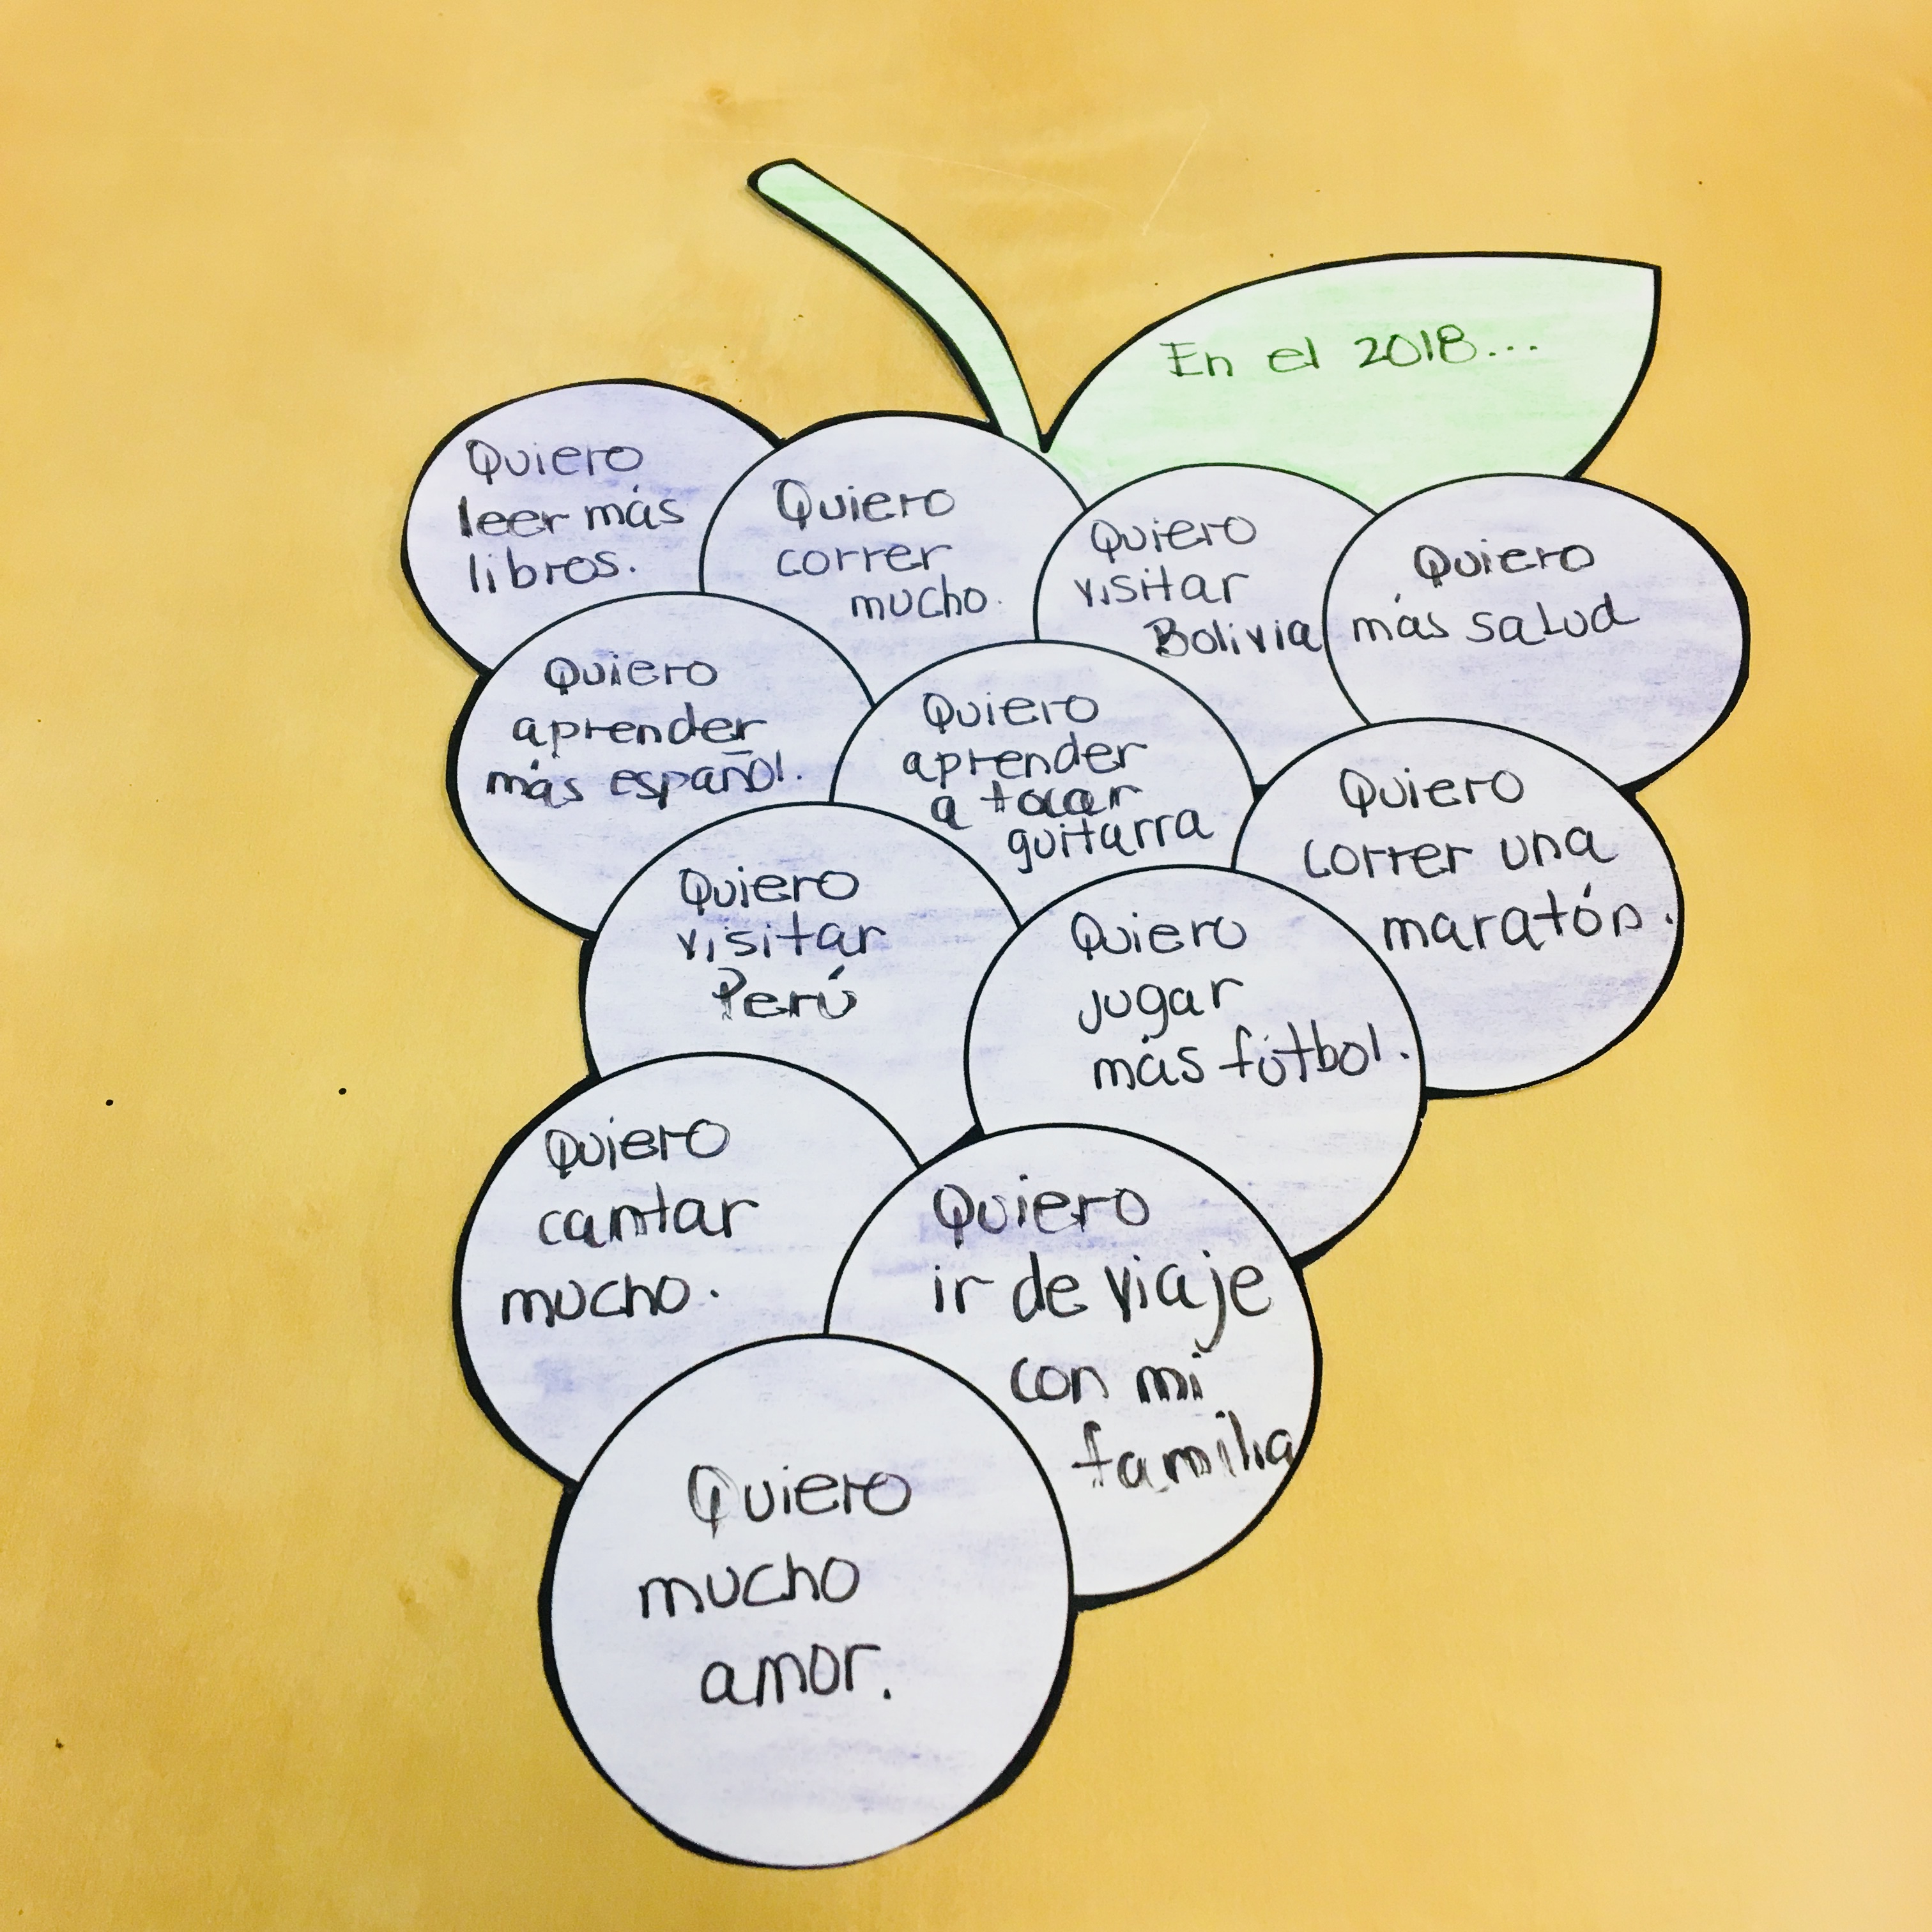 En el 2018...
Quiero
leer más
libros.
Quiero
correr
mucho.
Quiero
visitar
Bolivia
Quiero
más salud
Quiero
aprender
más español.
Quiero
aprender
a tocar
guitarra
Quiero
correr una
maratón.
Quiero
visitar
Perú
Quiero
jugar
más fútbol.
Quiero
cantar
mucho.
Quiero
ir de viaje
con mi
familia
Quiero
mucho
amor.